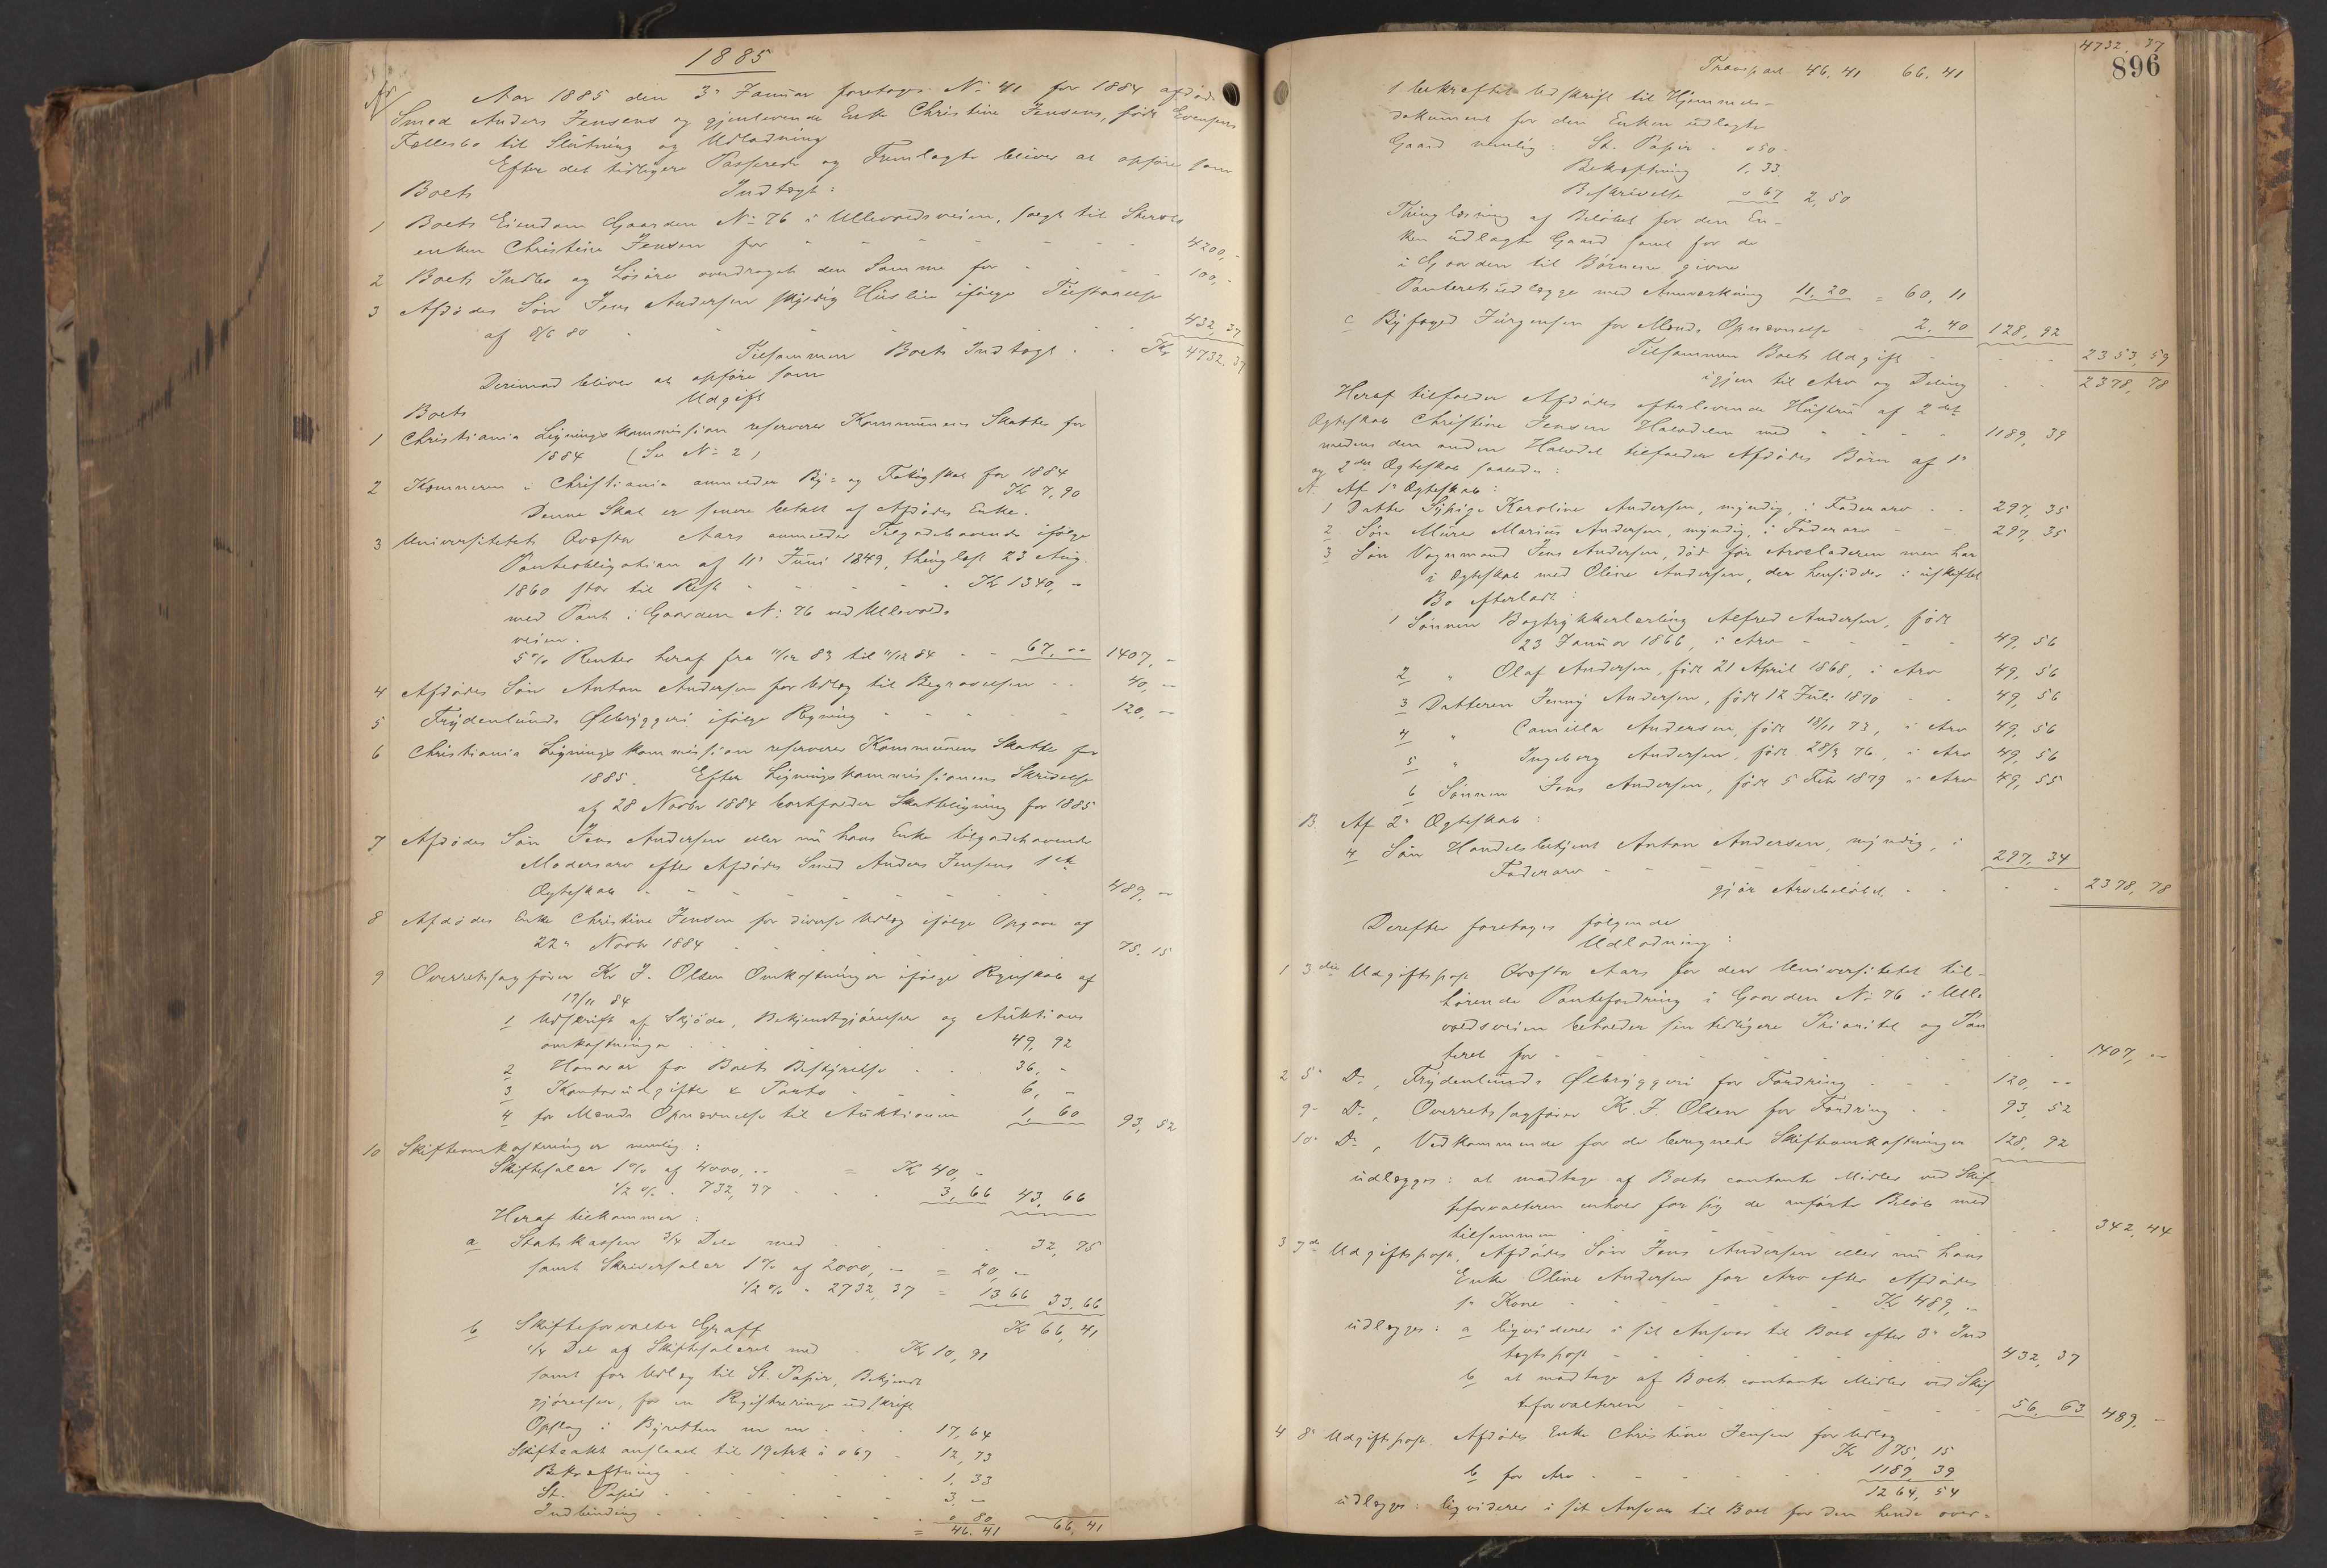 1885
Aar 1885 den 3' Januar foretoges No 41 for 1884 afdøde
Smed Anders Jensens og gjenlevende Enke Christine Jensens, født Evensens
Fællesbo til Slutning og Udlodning
Efter det tidligere Passerede og Fremlagte bliver at opføre som
Boets Indtægt:
1 Boets Eiendom Gaarden No 76 i Ullevoldsveien, solgt til
enken Christine Jensen for - - - - - - - 4200, -
2 Boets Indbo og Løsøre overdraget den Samme for - - - - 100, -
3 Afdødes Søn Jens Andersen skyldig Huslie ifølge Tilstaaelse
af 8/6 80 - - - - - 432, 37
Tilsammen Boets Indtægt - - Kr 4732. 37
Derimod bliver at opføre som
Boets Udgift
1 Christiania Ligningskommission reserverer Kommunens Skatter for
1884 (Se No 2)
2 Kæmneren i Christiania anmelder By= og Fattigskat for 1884
Kr 7, 90
Denne Skat er senere betalt af Afdødes Enke.
3 Universitetets Qvæstor Aars anmelder Tilgodehavende ifølge
Panteobligation af 11' Juni 1849, thinglæst 23 Aug.
1860 stor til Rest - - - - - Kr 1340, -
med Pant i Gaarden No: 76 ved Ullevolds
veien.
5 % Renter heraf fra 11/12 83 til 11/12 84 - - 67, -- 1407, -
4 Afdødes Søn Anton Andersen for Udlæg til Begravelsen - - 40, -
5 Frydenlunds Ølbryggeri ifølge Regning - - - - - 120, -
6 Christiania Ligningskommission reserverer Kommunens Skatter for
1885. Efter Ligningskommissionens Skrivelse
af 28 Novbr 1884 bortfalder Skatteligning for 1885
7 Afdødes Søn Jens Andersen eller nu hans Enke tilgodehavende
Modersarv efter Afdødes Smed Anders Jensens 1ste
Ægteskab - - - - - - - 489, -
8 Afdødes Enke Christine Jensen for diverse Udlæg ifølge Opgave af
22' Novbr 1884 - - - - - - 75. 15
9 Overretssagfører Kr J. Olsen Omkostninger ifølge Regnskab af
19/11 84
1 Udskrift af Skjøde, Bekjendtgjørelser og Auktions
omkostninger - - - - - 49, 92
2 Honorar for Boets Bestyrelse - - - 36, -
3 Kontorudgifter & Porto - - - 6, -
4 for Mænds Opnævnelse til Auktionen 1, 60 93, 52
10 Skifteomkostninger nemlig:
Skiftesalær 1 % af 4000, -- = Kr 40, -
1/2 % - 732, 37 - - - 3, 66 43, 66
Heraf tilkommer:
a Statskassen 3/4 Dele med - - - 32, 75
samt Skriversalær 1 % af 2000, - = 20, -
1/2 % - 2732, 37 = 13 66 33. 66
Kr 66, 41
b Skifteforvalter Graff
1/4 Del af Skiftesalæret med - Kr 10, 91
samt for Udlæg til St. Papir, Bekjendt
gjørelser, for en Registreringsudskrift
Opslag i Byretten m m - - - 17, 64
Skifteakt anslaaet til 19 Ark à 0 67 - 12, 73
Bekræftning - - - - - 1, 33
St. Papir - - - - - - 3, -
Indbinding - - - - - - 0 80
= 46. 41 66, 41
896
4732. 37
Transport 46, 41 66. 41
1 bekræftet Udskrift til Hjemmels-
dokument for den Enken udlagte
Gaard nemlig: St. Papir - 0 50 -
Bekræftning 1. 33.
Beskrivelse 0 67 2, 50
Thinglæsning af Beløbet for den En-
ken udlagte Gaard samt for de
i Gaarden til Børnene givne
Panteretsudlægge med Anmærkning 11, 20 = 60, 11
c Byfoged Jürgensen for Mænds Opnævnelse - 2. 40 128, 92
Tilsammen Boets Udgift - - 2353, 59
igjen til Arv og Deling - - 2378, 78
Heraf tilfalder Afdødes efterlevende Hustru af 2det
Ægteskab Christine Jensen Halvdelen med - - - - 1189, 39
medens den anden Halvdel tilfalder Afdødes Børn af 1'
og 2det Ægteskab saaledes:
A. Af 1' Ægteskab:
1 Datter Sypige Karoline Andersen, myndig, i Faderarv - - 297, 35
2 Søn Murer Marius Andersen, myndig, i Faderarv - - 297, 35
3 Søn Vognmand Jens Andersen, død før Arveladeren men har
i Ægteskab med Oline Andersen, der hensidder i uskiftet
Bo efterladt:
1 Sønnen Bogtrykkerlærling Alfred Andersen, født
23 Januar 1866, i Arv - - - - 49, 56
2 " Olaf Andersen, født 21 April 1868, i Arv 49, 56
3 Datteren Jenny Andersen, født 12 Juli 1870 - - 49, 56
4 " Camilla Andersen, født 18/11 73, i Arv 49, 56
5 " Ingeborg Andersen, født 28/3 76, i Arv 49, 56
6 Sønnen Jens Andersen, født 5 Febr 1879 i Arv 49, 55
B. Af 2' Ægteskab:
4 Søn Handelsbetjent Anton Andersen, myndig, i
Faderarv - - - - - - 297, 34
gjør Arvebeløbet - - - - 2378, 78
Derefter foretages følgende
Udlodning:
1 3die Udgiftspost Qvæstor Aars for den Universitetet til-
hørende Pantefordring i Gaarden No 76 i Ulle
voldsveien beholder sin tidligere Prioritet og Pan
teret for - - - - - - - 1407, --
2 5' Do, Frydenlunds Ølbryggeri for Fordring - - - 120, --
9' Do, Overretssagfører K. J. Olsen for Fordring - - 93, 52
10' Do, Vedkommende for de beregnede Skifteomkostninger 128, 92
udlægges: at modtage af Boets contante Midler ved Skif
teforvalteren enhver for sig de anførte Beløb med
tilsammen - - - - - - - 342, 44
3 7de Udgiftspost, Afdødes Søn Jens Andersen eller nu hans
Enke Oline Andersen for Arv efter Afdødes
1' Kone - - - - - Kr 489, --
udlægges: a ligviderer i sit Ansvar til Boet efter 3' Ind
tægtspost - - - - - - 432, 37
b at modtage af Boets contante Midler ved Skif
teforvalteren - - - - - - 56. 63 489, -
4 8' Udgiftspost. Afdødes Enke Christine Jensen for Udlæg
Kr 75, 15
b for Arv - - - - - 1189. 39
1264, 54
udlægges: ligviderer i sit Ansvar til Boet for den hende over=